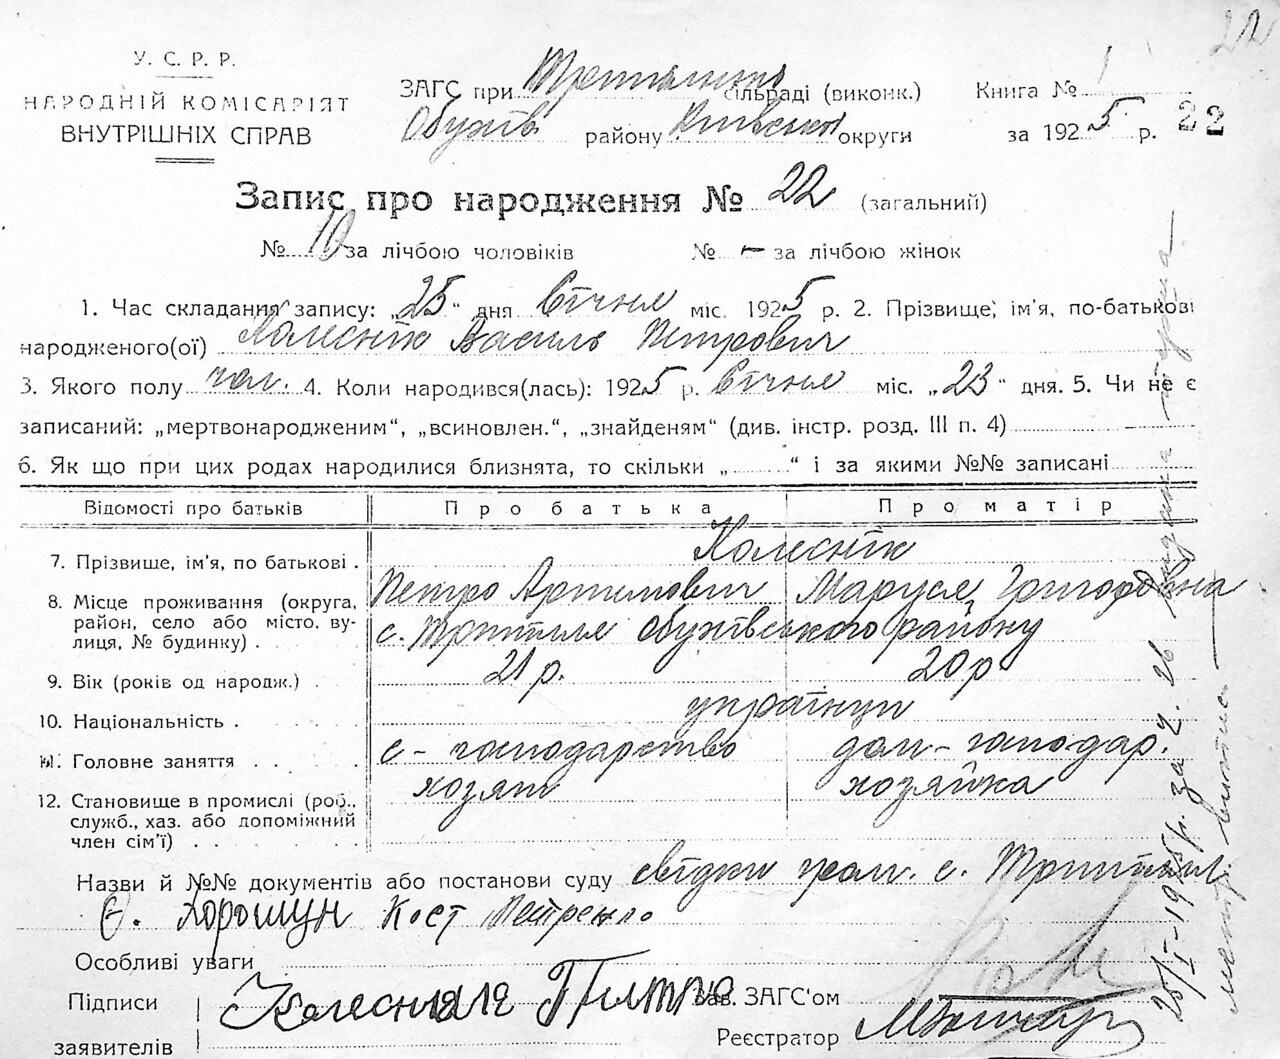 22
У. С. Р. Р.
НАРОДНІЙ КОМІСАРІЯТ
ВНУТРІШНІХ СПРАВ
ЗАГС при сільраді (виконк.)
Обухів району Київської округи
Книга № 1
за 1925 р. 22
Запис про народження № 22 (загальний)
№ 10 за лічбою чоловіків № – за лічбою жінок
1. Час складання запису: „25" дня Січня міс. 1925 р. 2. Прізвище, ім'я, по-батькові
народженого(ої) Колеснік Василь Петрович
3. Якого полу чол. 4. Коли народився(лась): 1925 р. Січня міс. „23" дня. 5. Чи не є
записаний: „мертвонародженим", „всиновлен.", „знайденям" (див. інстр. розд. III п. 4)
6. Як що при цих родах народилися близнята, то скільки „ " і за якими №№ записані
Відомості про батьків Про батька Про матір
7. Прізвище, ім'я, по батькові . Колеснік
Петро Артемович Маруся Григоровна
8. Місце проживання (округа, район, село або місто, вулиця, № будинку) . с. Трипілля Обухівського району
9. Вік (років од народж.) . 21 р. 20 р
10. Національність . українці
11. Головне заняття . . . . . с-господарство дом-господар.
12. Становище в промислі (роб., служб., хаз. або допоміжний член сім'ї) . . . . . . . хозяїн хозяйка
Назви й №№ документів або постанови суду свідки гром. с. Трипілля
Є. Хорошун Кост Петренко
Особливі уваги
Підписи
заявителів
Колесника Петро
Зав. ЗАГС'ом
Реєстратор
25/I-1925 р. за ч. 26 видана перша
метр. виписъ